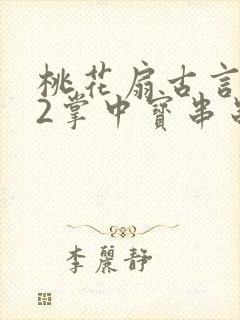 桃花扇古言
2掌中寳串
李麗静